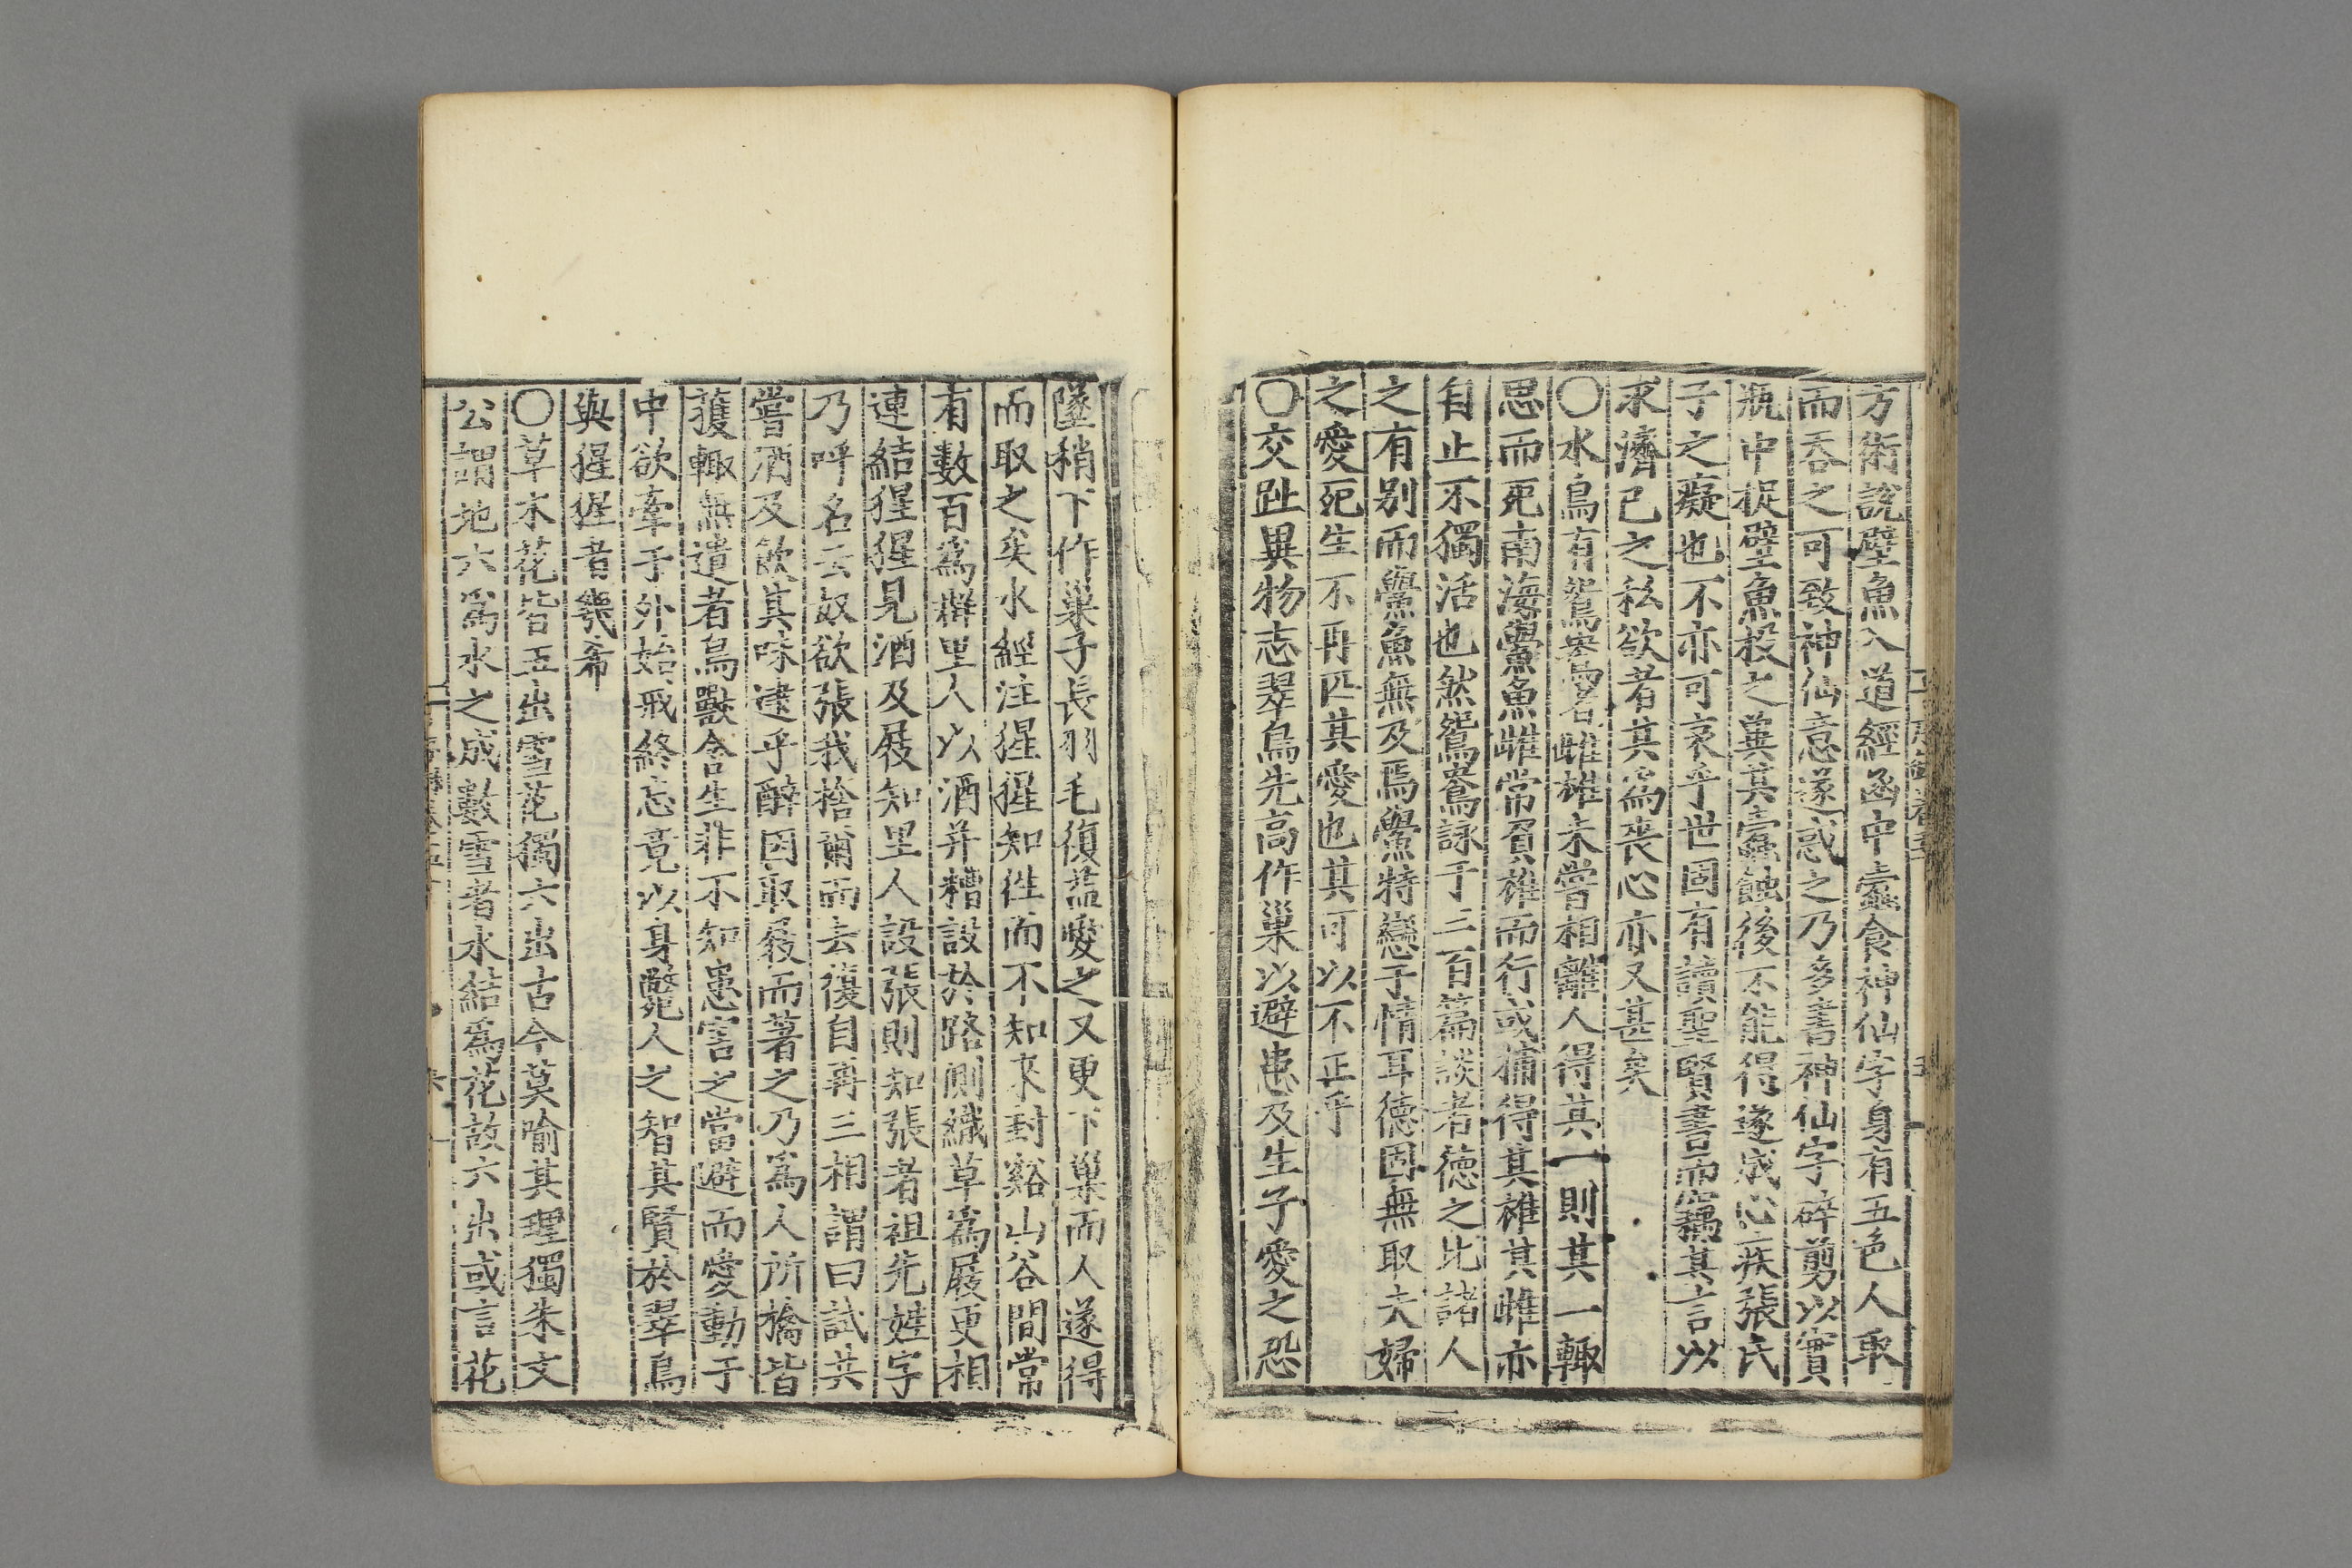 方術說壁魚入道經函中蠧食神仙字身有五色人取
而吞之可致神仙意遂惑之乃多書神仙字碎剪以實
瓶中捉壁魚投之冀其蠧蝕後不能得遂成心疾張氏
子之癡也不亦可哀乎世固有讀聖賢書而竊其言以
求濟己之私欲者其爲喪心亦又甚矣
〇水鳥有鴛鴦雌雄未嘗相離人得其一則其一輒
思而死南海鱟魚雌常負雄而行或捕得其雄其雌亦
自止不獨活也然鴛鴦詠于三百篇談者德之比諸人
之有别而鱟魚無及焉鱟特戀于情耳德固無取夫婦
之愛死生不再匹其愛也其可以不正乎
〇交趾異物志翠鳥先高作巢以避患及生子愛之恐
墜稍下作巢子長羽毛復益愛之又更下巢而人遂得
而取之矣水經注猩猩知徃而不知來封谿山谷間常
有數百爲群里人以酒并糟設於路側織草爲屐更相
連結猩猩見酒及屐知里人設張則知張者祖先姓字
乃呼名云奴欲張我捨爾而去復自再三相謂曰試共
嘗酒及飲其味逮乎醉因取屐而著之乃爲人所擒皆
獲輒無遺者鳥獸含生非不知患害之當避而愛動于
中欲牽于外始戒終忘竟以身斃人之智其賢於翠鳥
與猩猩者幾希
〇草木花皆五出雪花獨六出古今莫喻其理獨朱文
公謂地六爲水之成數雪者水結爲花故六出或言花